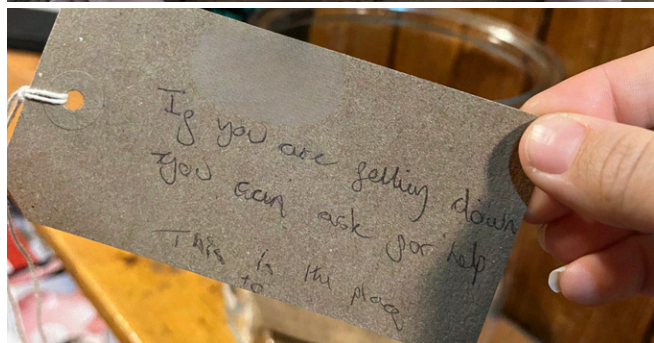 If you are felling down
you can ask for help
This is the place
to